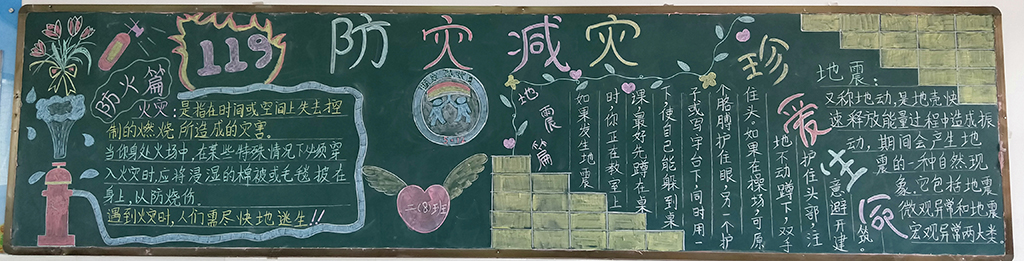 防灾减灾
119
防火篇
火灾：是指在时间或空间上失去控
制的燃烧所造成的灾害。
当你身处火场中，在某些特殊情况下必须穿
入火灾时应将浸湿的棉被或毛毯披在
身上，以防烧伤。
遇到火灾时，人们需尽快地逃生！！
二（8）班
地震篇
如果发生地震
时你正在教室上
课最好先蹲在课桌
下，使自己能躲到桌
子或写字台下，同时用一
个胳膊护住眼，另一个护
住头。如果在操场，可原
地不动蹲下，双手
护住头部，注
意避开建
筑。
珍爱生命
地震：
又称地动，是地壳快
速释放能量过程中造成振
动，期间会产生地
震的一种自然现
象。它包括地震
微观异常和地震
宏观异常两大类。